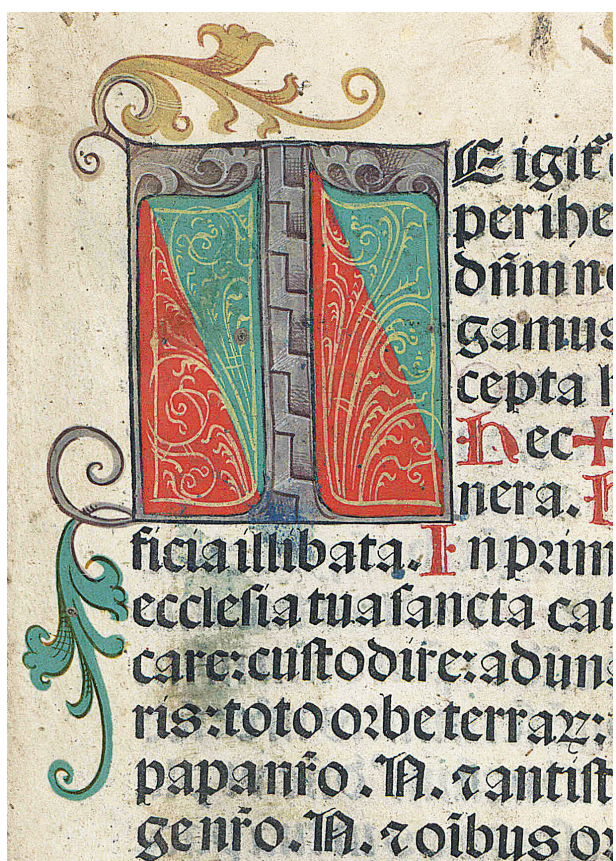 TE igit̄
perihe
dn̄m n
gamus
cepta h
hec +
nera. h
ficia illibata. In prim
ecclesia tua sancta cat
care: custodire: aduna
ris: toto orbe terraꝝ:
papa nr̄o. N. ⁊ antist
ge nr̄o. N. ⁊ oi̅bus or